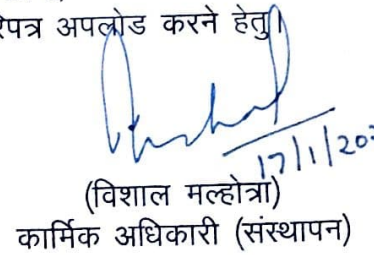 रिपत्र अपलोड करने हेतु।
17/1/202
(विशाल मल्होत्रा)
कार्मिक अधिकारी (संस्थापन)